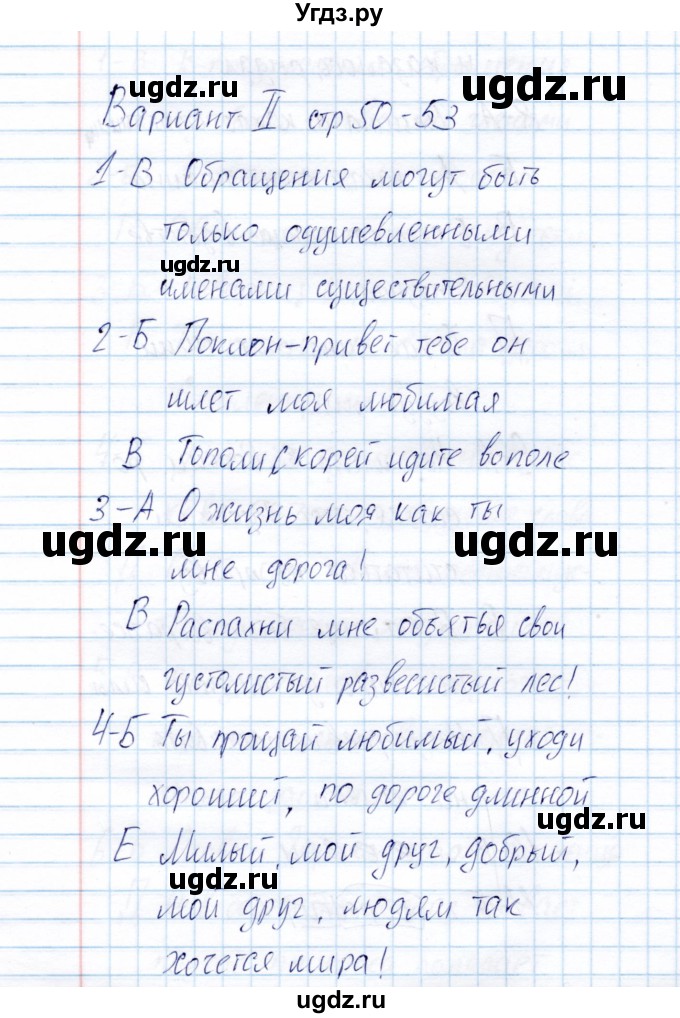 Угдз.ру
ugdz.ru ugdz.ru
Вариант II стр 50-53
1-В Обращения могут быть
только одушевленными
ugdz.ru
именами существительными
2-Б Поклон-привет тебе он
шлет моя любимая
В Тополи скорей идите во поле
3-А О жизнь моя как ты
ugdz.ru ugdz.ru
мне дорога!
В Распахни мне объятья свои
густолистый развесистый лес!
4-Б Ты прощай любимый, уходи
хороший, по дороге длинной
ugdz.ru
Е Милый, мой друг, добрый,
ugdz.ru
мой друг, людям так
хочется мира!
ugdz.ru